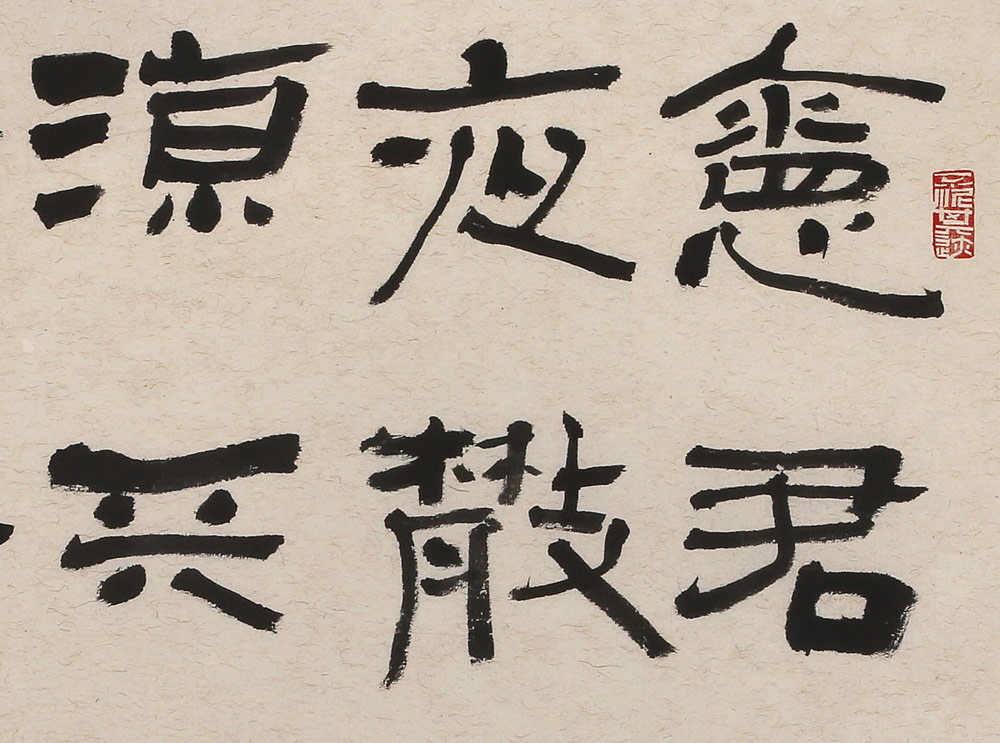 懷君
夜散
涼天